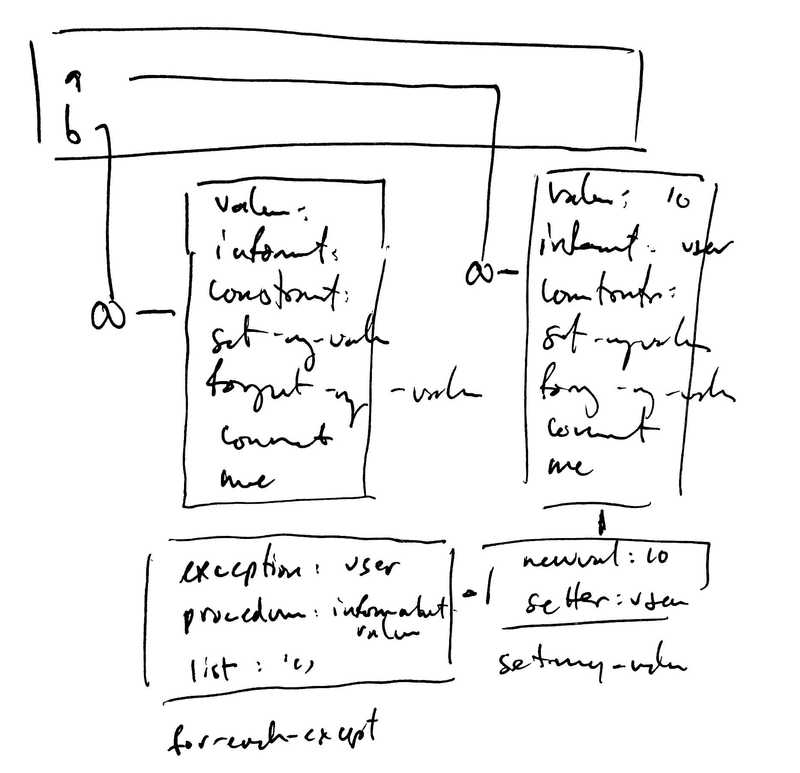 a
b
value:
informant:
constraint:
set-my-value
forget-my-value
connect
me
value: 10
informant: user
constraints:
set-my-value
forg-my-value
connect
me
exception: user
procedure: inform-about-
value
list: '()
for-each-except
newval: 10
setter: user
set-my-value